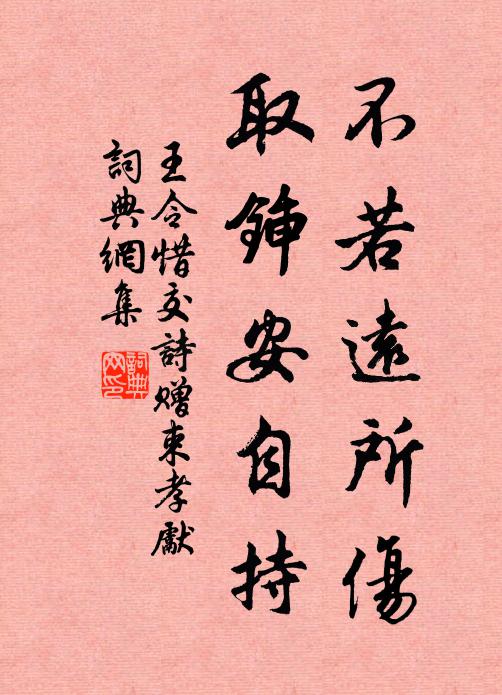 不若遠所傷
取鉮安自持
王令惜交詩贈束孝獻
詞典網集
詞典網印